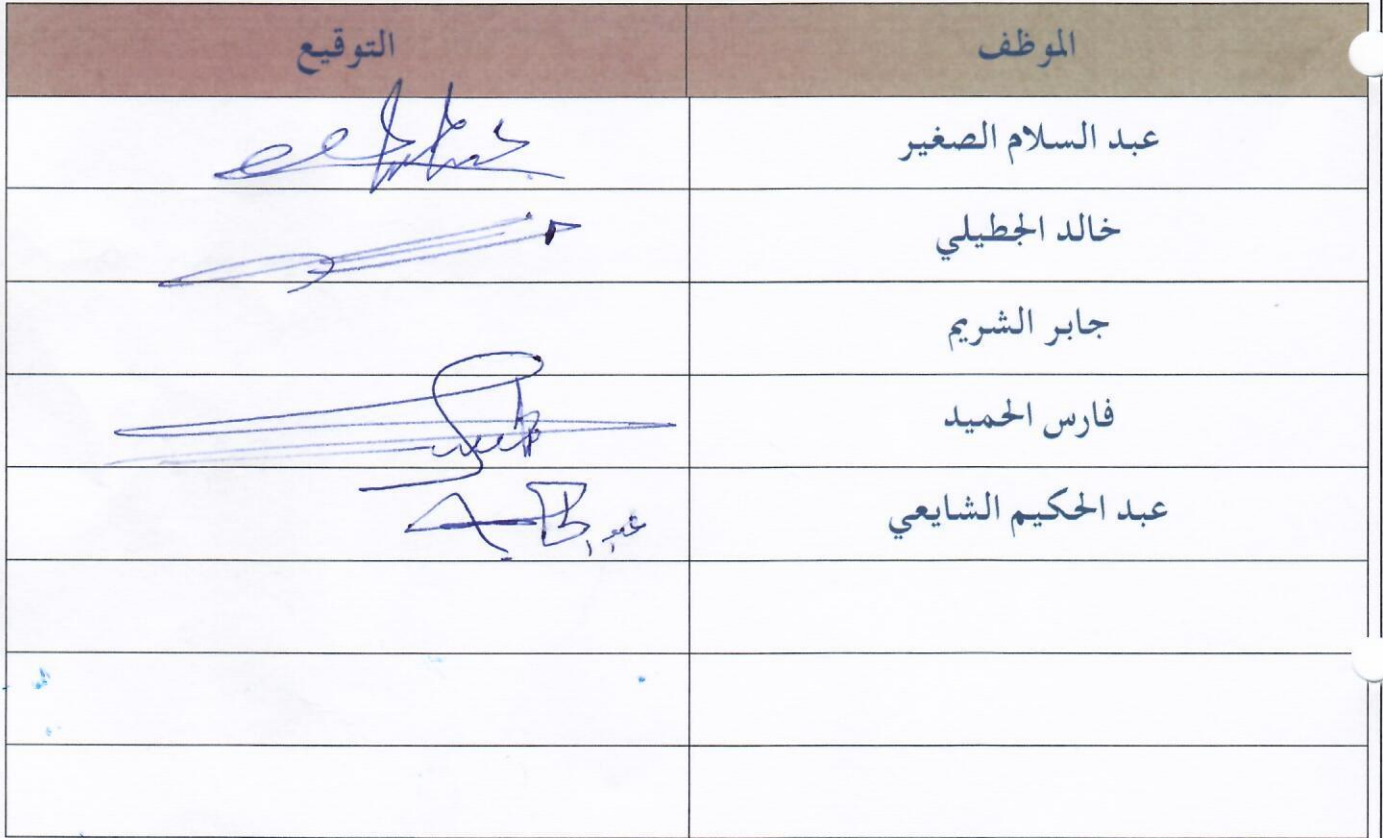 الموظف التوقيع
عبد السلام الصغير
خالد الجطيلي
جابر الشريم
فارس الحميد
عبد الحكيم الشايعي